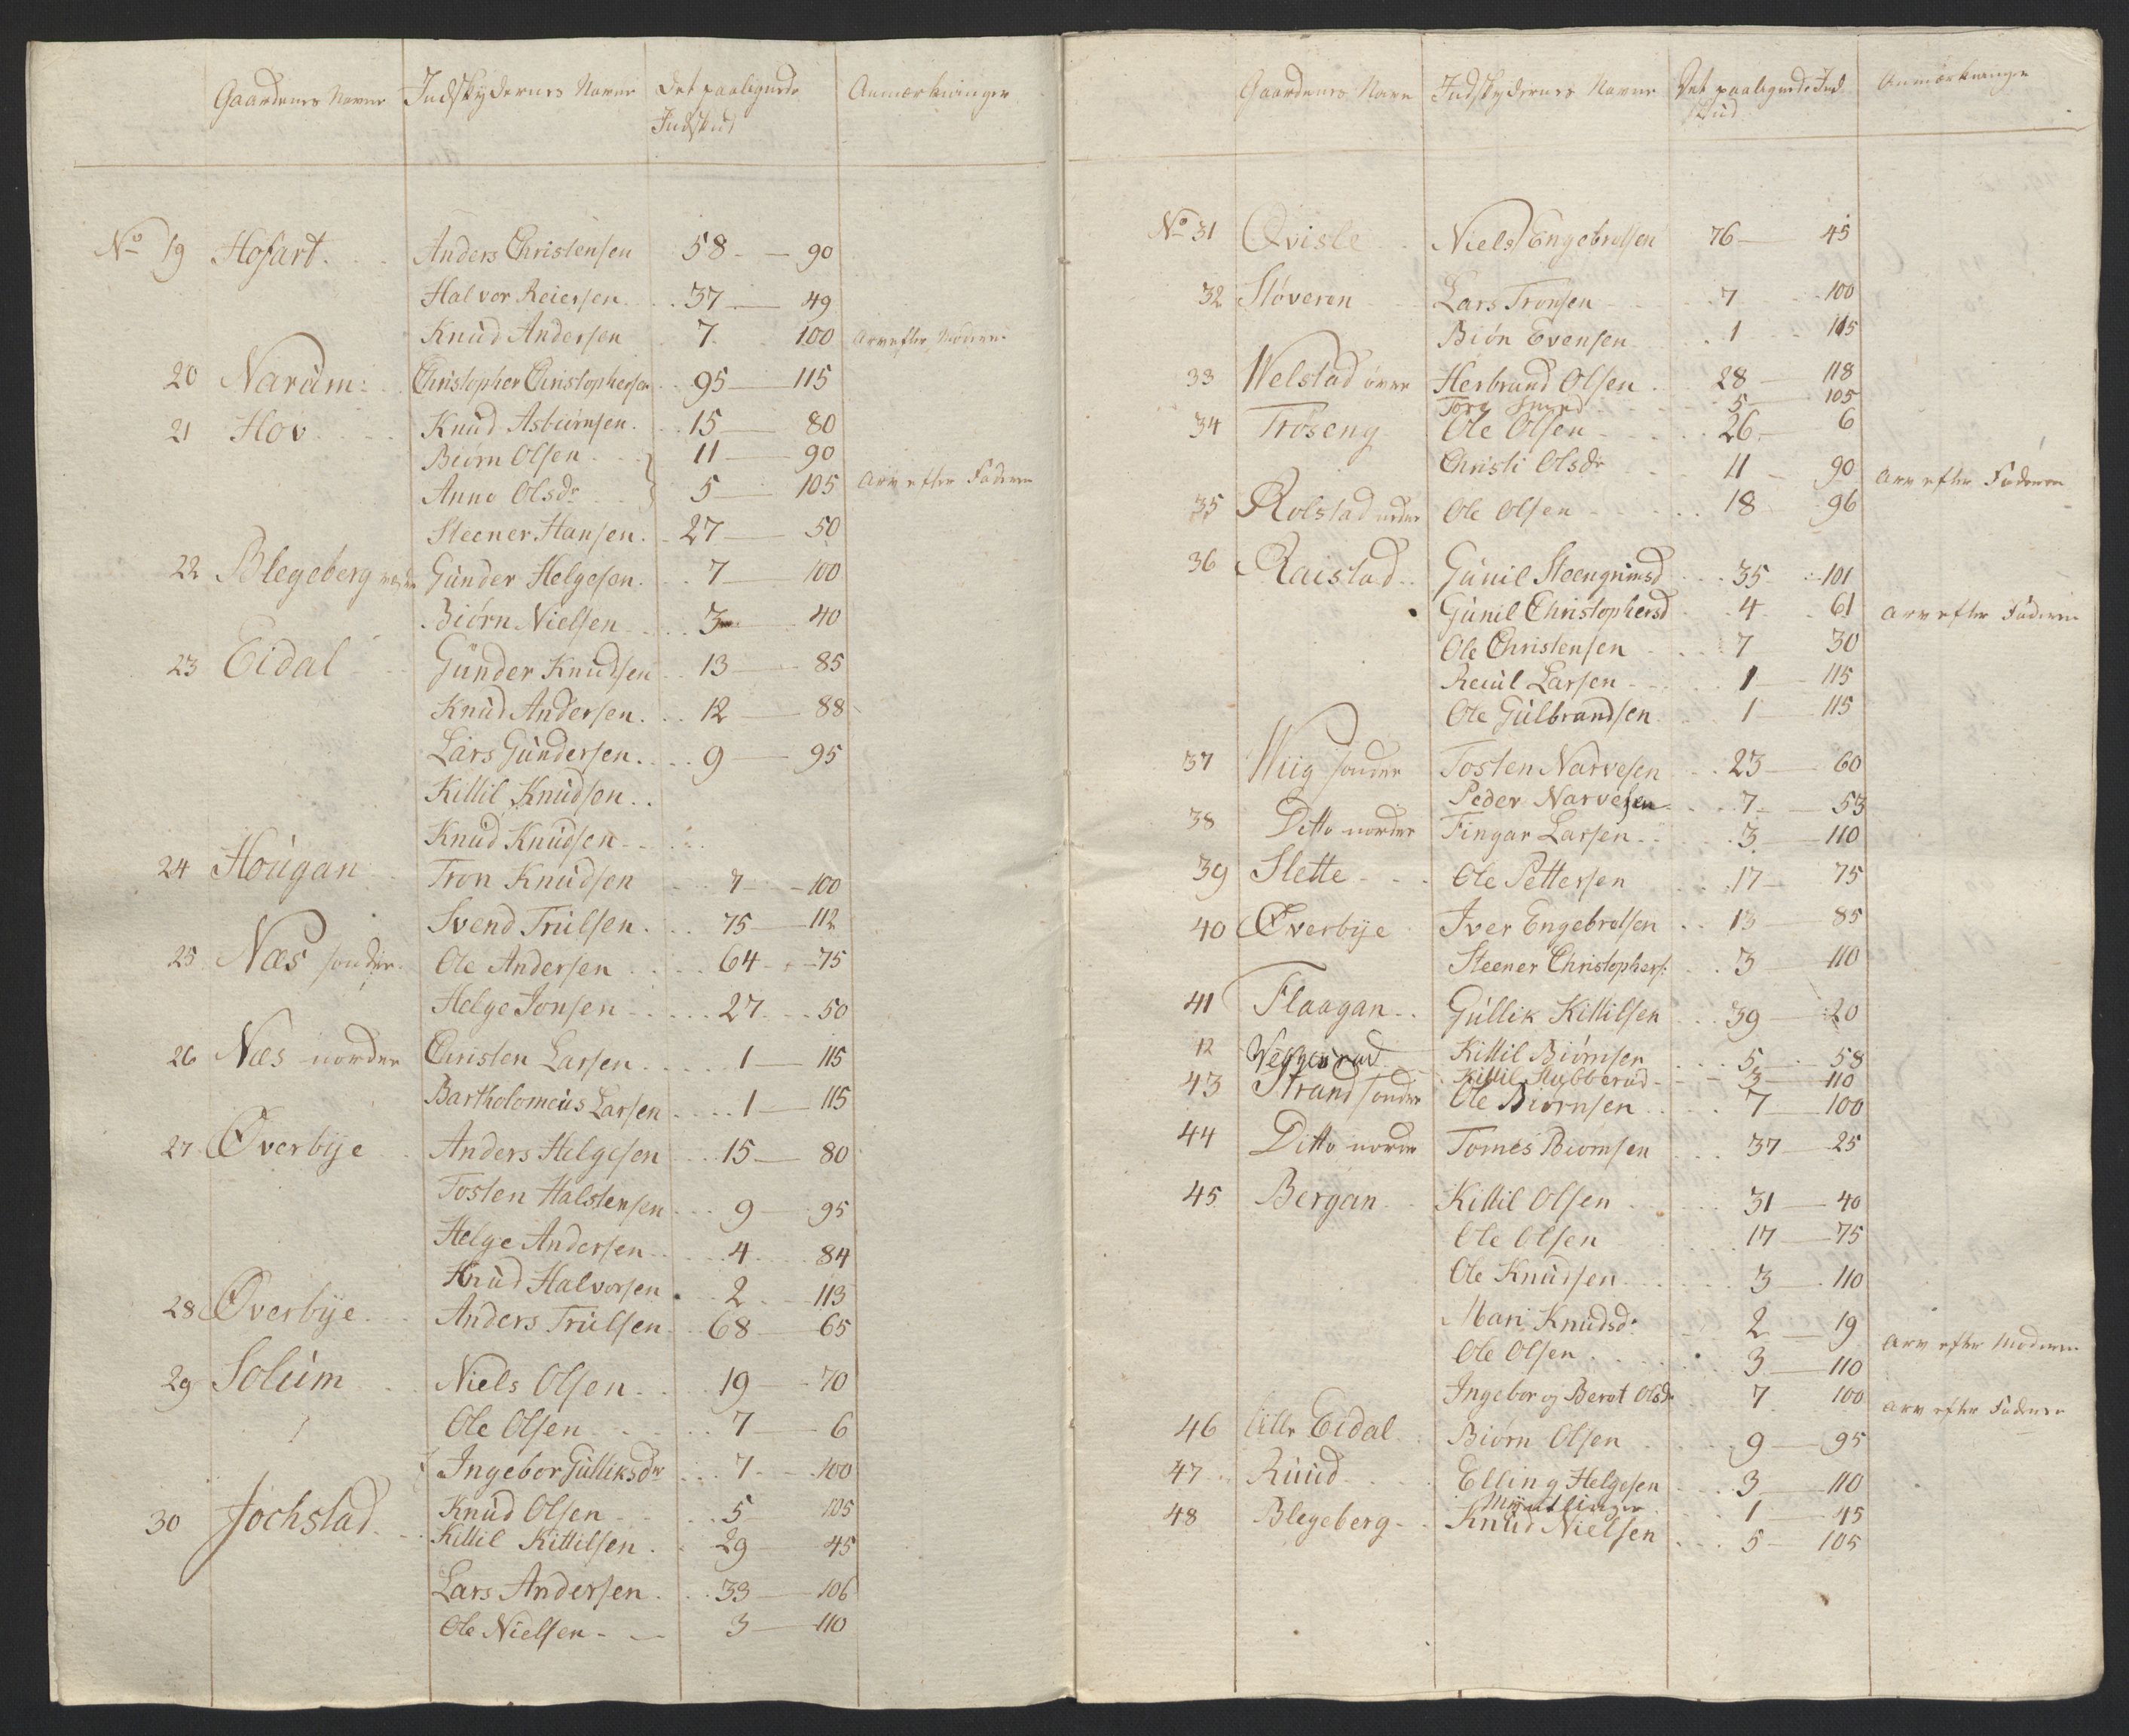 Gaardenes Navne Indskydernes Navne Det paalignede Indskud Anmærkninger
No 19 Hofart. Anders Christensen 58 — 90
Halvor Reiersen 37 — 49
Knud Andersen 7 100 Arv efter Moderen
20 Narum: Christopher Christophersen 95 — 115
21 Hov Knud Asbiørnsen. 15 — 80
Biørn Olsen 11 — 90
Anne Olsdr 5 — 105 Arv efter Faderen
Steener Hansen. 27 — 50
22 Blegeberg Gunder Helgesen. 7 — 100
Biørn Nielsen 3 — 40
23 Eidal Gunder Knudsen 13 — 85
Knud Andersen. 12 — 88
Lars Gundersen. 9 — 95
Killil Knudsen..
Knud Knudsen
24 Hougan Tron Knudsen 7 — 100
Svend Trulsen. 75 — 112
25 Næs sondre Ole Andersen 64 — 75
Helge Jonsen 27 — 50
26 Næs nordre Christen Larsen 1 — 115
Bartholomeus Larsen 1 — 115
27 Øverbye Anders Helgesen 15 — 80
Tosten Halstensen 9 — 95
Helge Andersen 4 — 84
Knud Halvorsen 2 — 113
28 Øverbye Anders Trulsen 68 — 65
29 Solum Niels Olsen 19 — 70
Ole Olsen 7 — 6
Ingebor Gulliksdr 7 — 100
Knud Olsen 5 105
30 Jochstad Kittil Kittilsen 29 — 45
Lars Andersen 33 — 106
Ole Nielsen 3 — 110
Gaardenes Navn Indskydernes Navne Det paalignede Indskud Anmærkninger
No 31 Qvisle Niels Engebretsen 76 — 45
32 Støveren Lars Tronsen 7 100
Biøn Evensen 1 115
33 Welstad øvre Herbrand Olsen 28 — 118
Tore 5 — 105
34 Trøseng Ole Olsen 26 — 6
Christi Olsdr 11 — 90 Arv efter Faderen
35 Rolstad Ole Olsen 18 96
36 Raistad Gunil Steengrimsd 35 101
Gunil Christophersd 4 61 Arv efter Faderen
Ole Christensen 7 30
Reiul Larsen 1 — 115
Ole Gulbrandsen 1 — 115
37 Wiig sondre Tosten Narvesen 23 — 60
Peder Narvesen 7 — 53
38 Ditto nordre Fingar Larsen 3 — 110
39 Slette Ole Pettersen 17 — 75
40 Øverbye Iver Engebretsen 13 — 85
Steener Christophers: 3 — 110
41 Flaagan Gullik Killilsen 39 — 20
12 Kittil Biørnsen 5 58
Kittil Stubberud 3 — 110
43 Strand sondre Ole Biørnsen 7 — 100
44 Ditto nordre Tomes Biørnsen 37 — 25
45 Bergan Killil Olsen 31 — 40
Ole Olsen 17 — 75
Ole Knudsen 3 — 110
Mari Knudsdr 2 — 19
Ole Olsen 3 — 110 Arv efter Moderen
Ingebor og Beret Olsdr 7 100 Arv efter Faderen
46 lille Eidal Biørn Olsen 9 — 95
47 Ruud Elling Helgesen 3 — 110
Myntlinger 1 — 45
48 Blegeberg Knud Nielsen 5 — 105